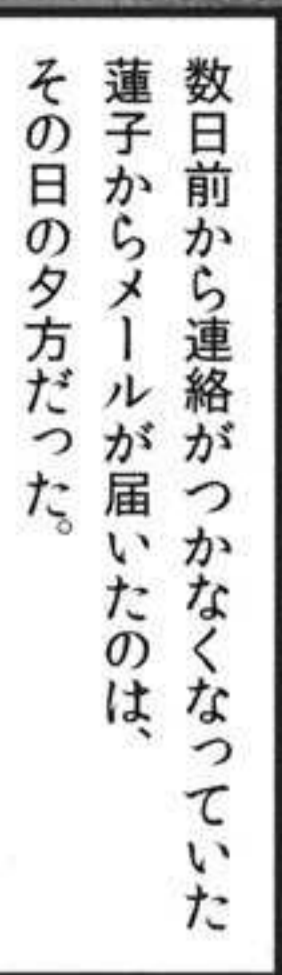 数日前から連絡がつかなくなっていた
蓮子からメールが届いたのは、
その日の夕方だった。